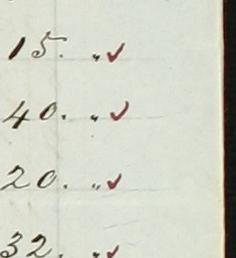 15. " ✓
40. " ✓
20. " ✓
32. " ✓